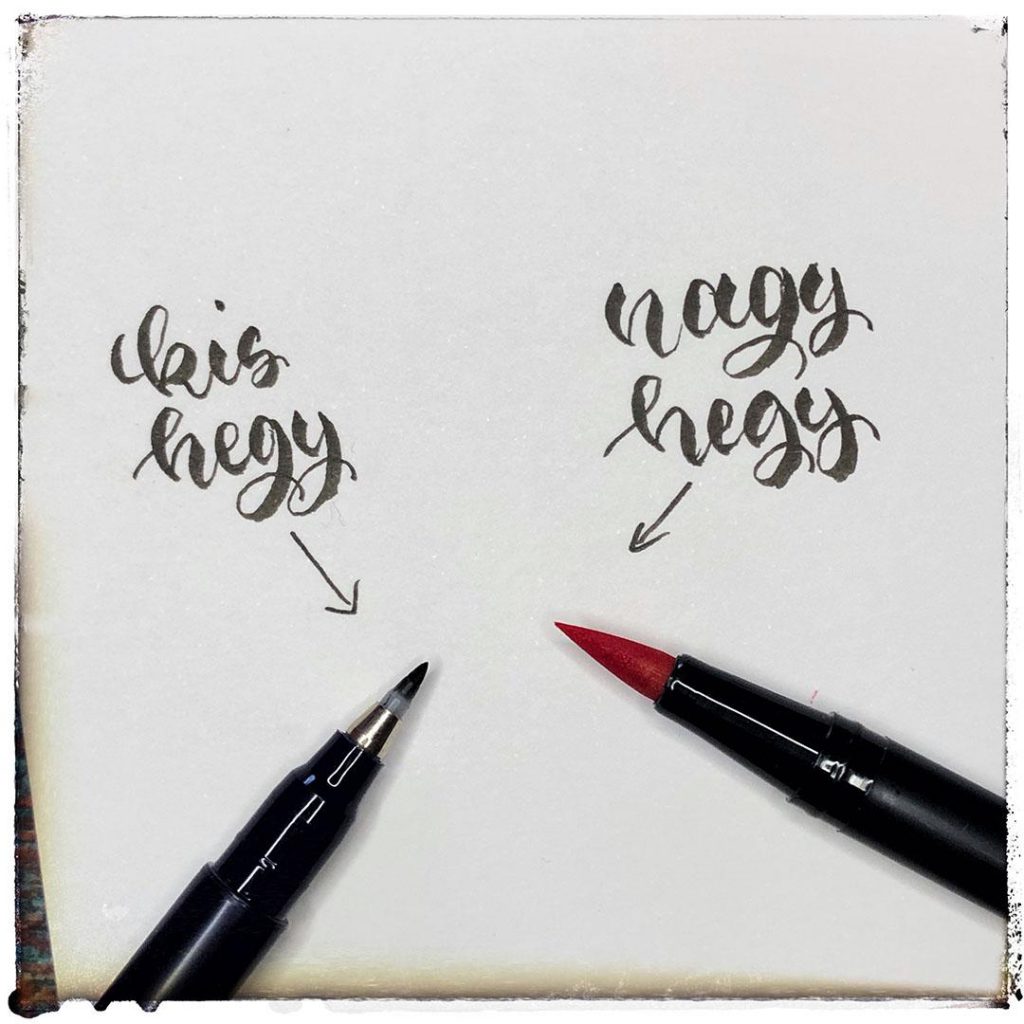 kis
hegy
nagy
hegy